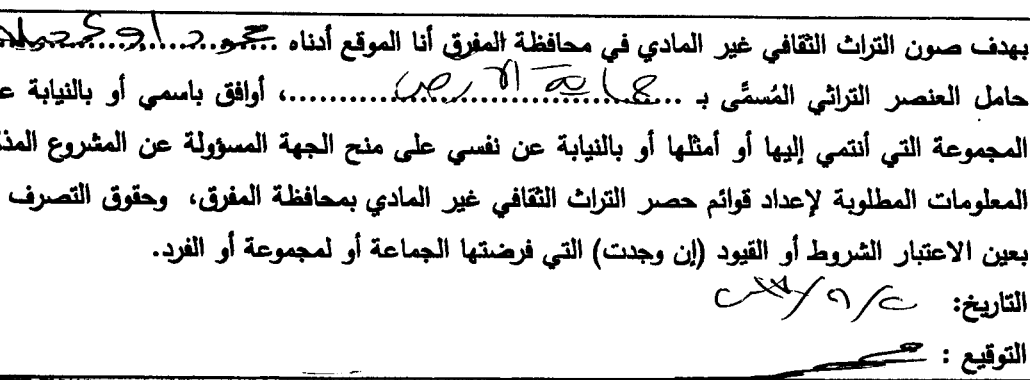 بهدف صون التراث الثقافي غير المادي في محافظة المفرق أنا الموقع أدناه
حامل العنصر التراثي المُسمَّى بـ ................ حماية الارض ................، أوافق باسمي أو بالنيابة
المجموعة التي أنتمي إليها أو أمثلها أو بالنيابة عن نفسي على منح الجهة المسؤولة عن المشروع
المعلومات المطلوبة لإعداد قوائم حصر التراث الثقافي غير المادي بمحافظة المفرق، وحقوق التصرف
بعين الاعتبار الشروط أو القيود (إن وجدت) التي فرضتها الجماعة أو لمجموعة أو الفرد.
التاريخ:
التوقيع :